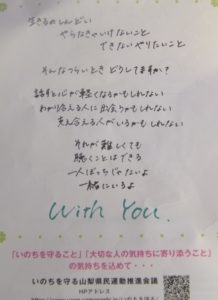 生きるのしんどい
やらなきゃいけないこと
できないやりたいこと
そんなつらいとき どうしてますか?
話すと心が軽くなるかもしれない
わかり合える人に出会うかもしれない
支え合える人がいるかもしれない
それが難しくても
聴くことはできる
一人ぼっちじゃないよ
一緒にいるよ
With You
「いのちを守ること」「大切な人の気持ちに寄り添うこと」
の気持ちを込めて・・・
いのちを守る山梨県民運動推進会議
HPアドレス